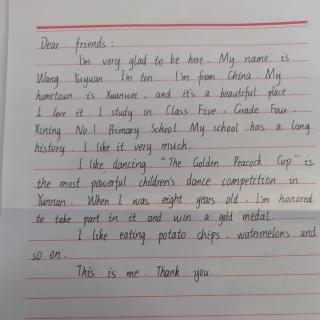 Dear friends:
I'm very glad to be here. My name is
Wang Yuyuan. I'm ten. I'm from China. My
hometown is Xuanwei, and it's a beautiful place.
I love it. I study in Class Five, Grade Four,
Xining No.1 Primary School. My school has a long
history. I like it very much.
I like dancing. "The Golden Peacock Cup" is
the most powerful children's dance competition in
Yunnan. When I was eight years old, I'm honored
to take part in it and win a gold medal.
I like eating potato chips, watermelons and
so on.
This is me. Thank you.